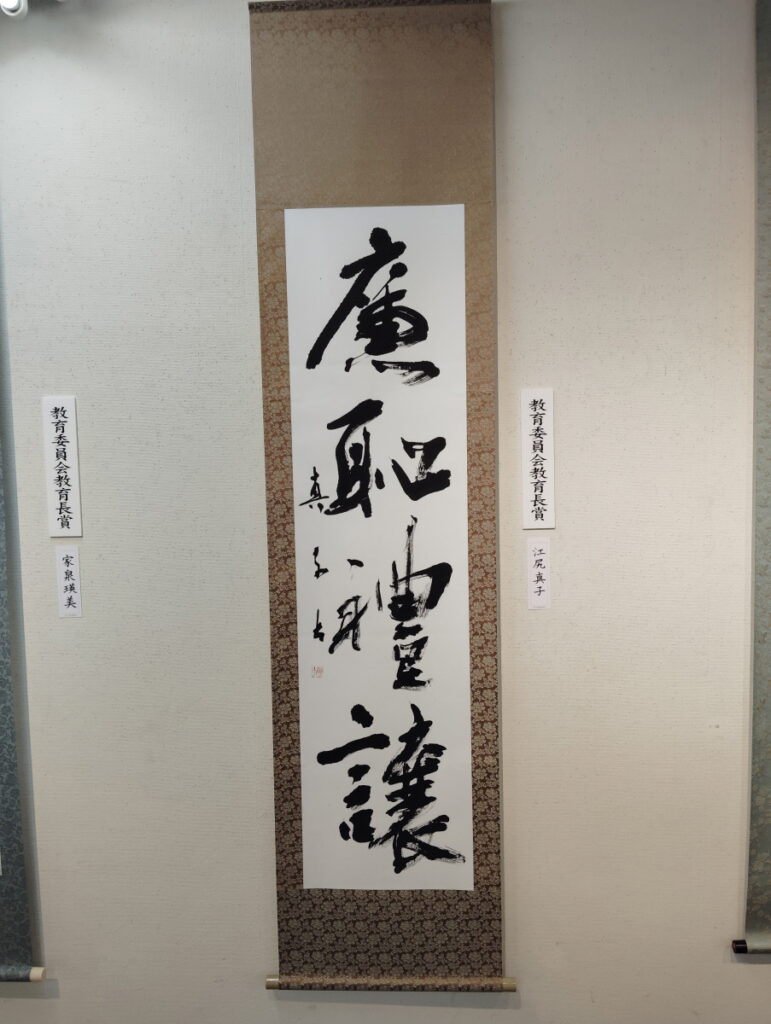 教育委員会教育長賞
江尻真子
廉恥禮讓
真子
教育委員会教育長賞
家泉瑛美